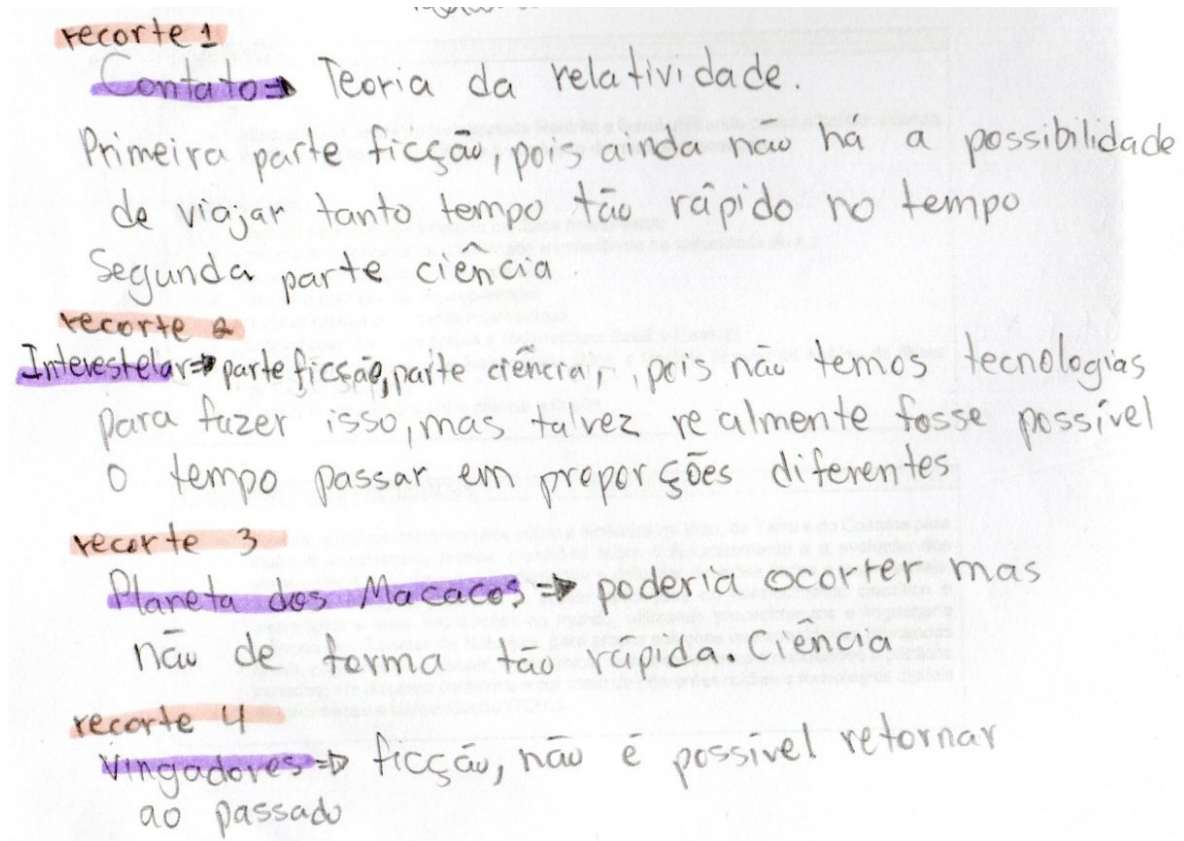 recorte 1
Contato => Teoria da relatividade.
Primeira parte ficção, pois ainda não há a possibilidade
de viajar tanto tempo tão rápido no tempo
Segunda parte ciência.
recorte 2
Interestelar => parte ficsão, parte ciência, , pois não temos tecnologias
para fazer isso, mas talvez realmente fosse possível
o tempo passar em proporções diferentes
recorte 3
Planeta dos Macacos => poderia ocorrer mas
não de forma tão rápida. Ciência
recorte 4
Vingadores => ficção, não é possível retornar
ao passado